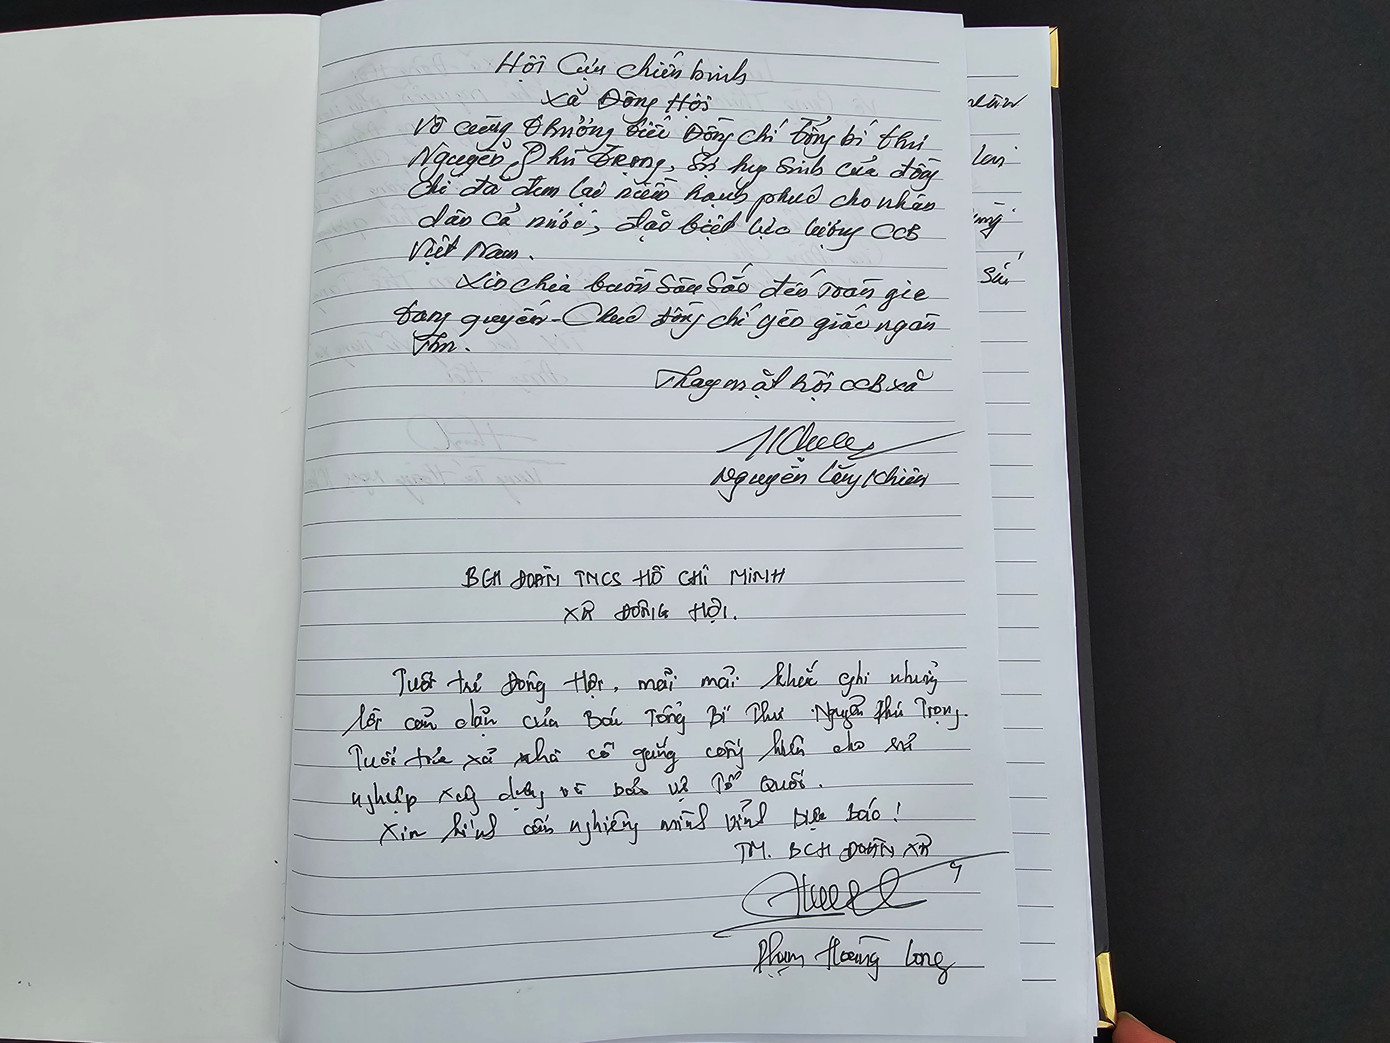 Hội Cựu chiến binh
xã Đông Hội
Vô cùng thương tiếc Đồng chí tổng bí thư
Nguyễn Phú Trọng, Sự hy sinh của đồng
chí đã đem lại niềm hạnh phúc cho nhân
dân cả nước, đặc biệt lực lượng CCB
Việt Nam.
Xin chia buồn sâu sắc đến toàn gia
tang quyến - Chúc đồng chí yên giấc ngàn
Thu.
Thay mặt hội CCB xã
Nguyễn Khiên
BCH ĐOÀN TNCS HỒ CHÍ MINH
XÃ ĐÔNG HỘI.
Tuổi trẻ Đông Hội, mãi mãi khắc ghi những
lời căn dặn của Bác Tổng Bí Thư Nguyễn Phú Trọng.
Tuổi trẻ xã nhà cố gắng cống hiến cho sự
nghiệp xây dựng và bảo vệ Tổ Quốc.
Xin kính cẩn nghiêng mình vĩnh biệt Bác!
TM. BCH ĐOÀN XÃ
Phạm Hoàng Long
nhân
lai
sâu